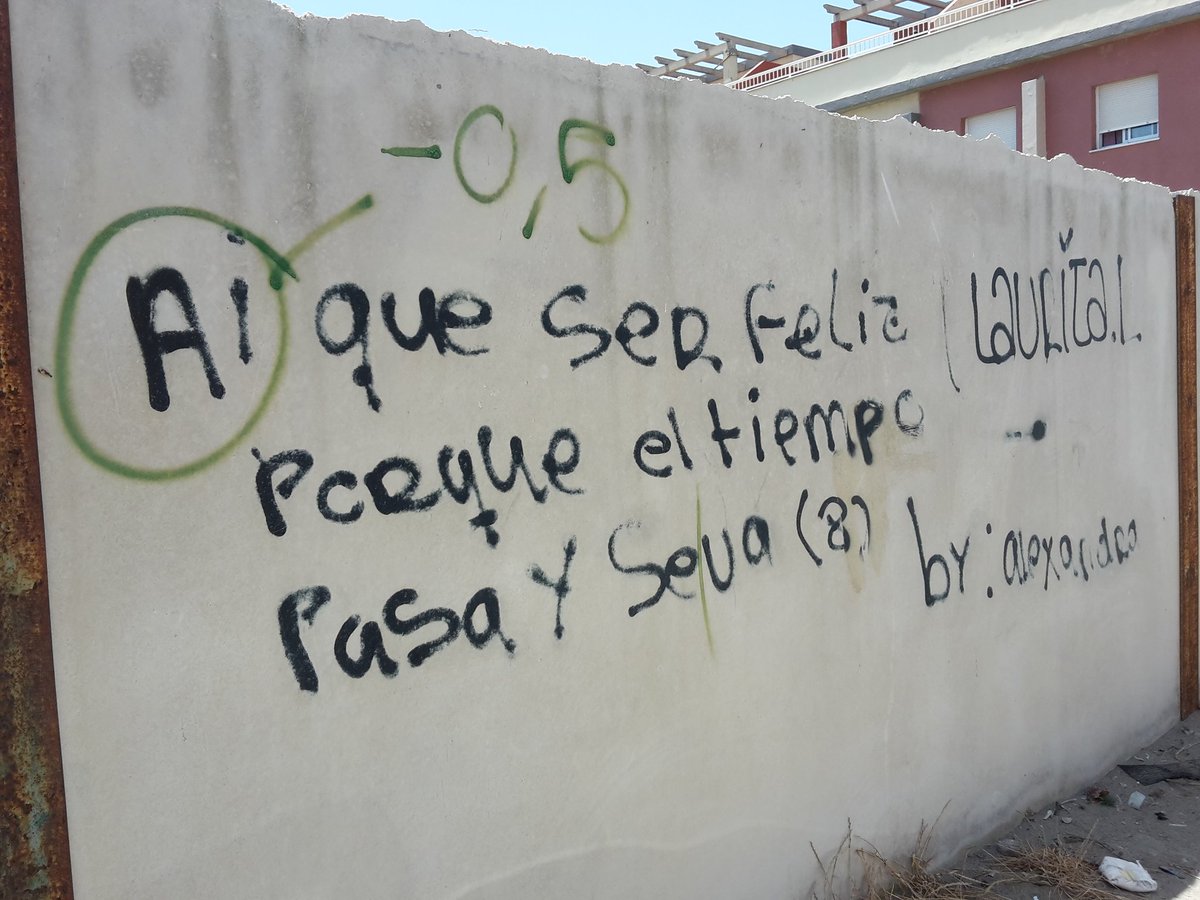 -0,5
Ai que ser feliz
porque el tiempo
Pasa y seva (8)
Laurita.L
by: alexandra